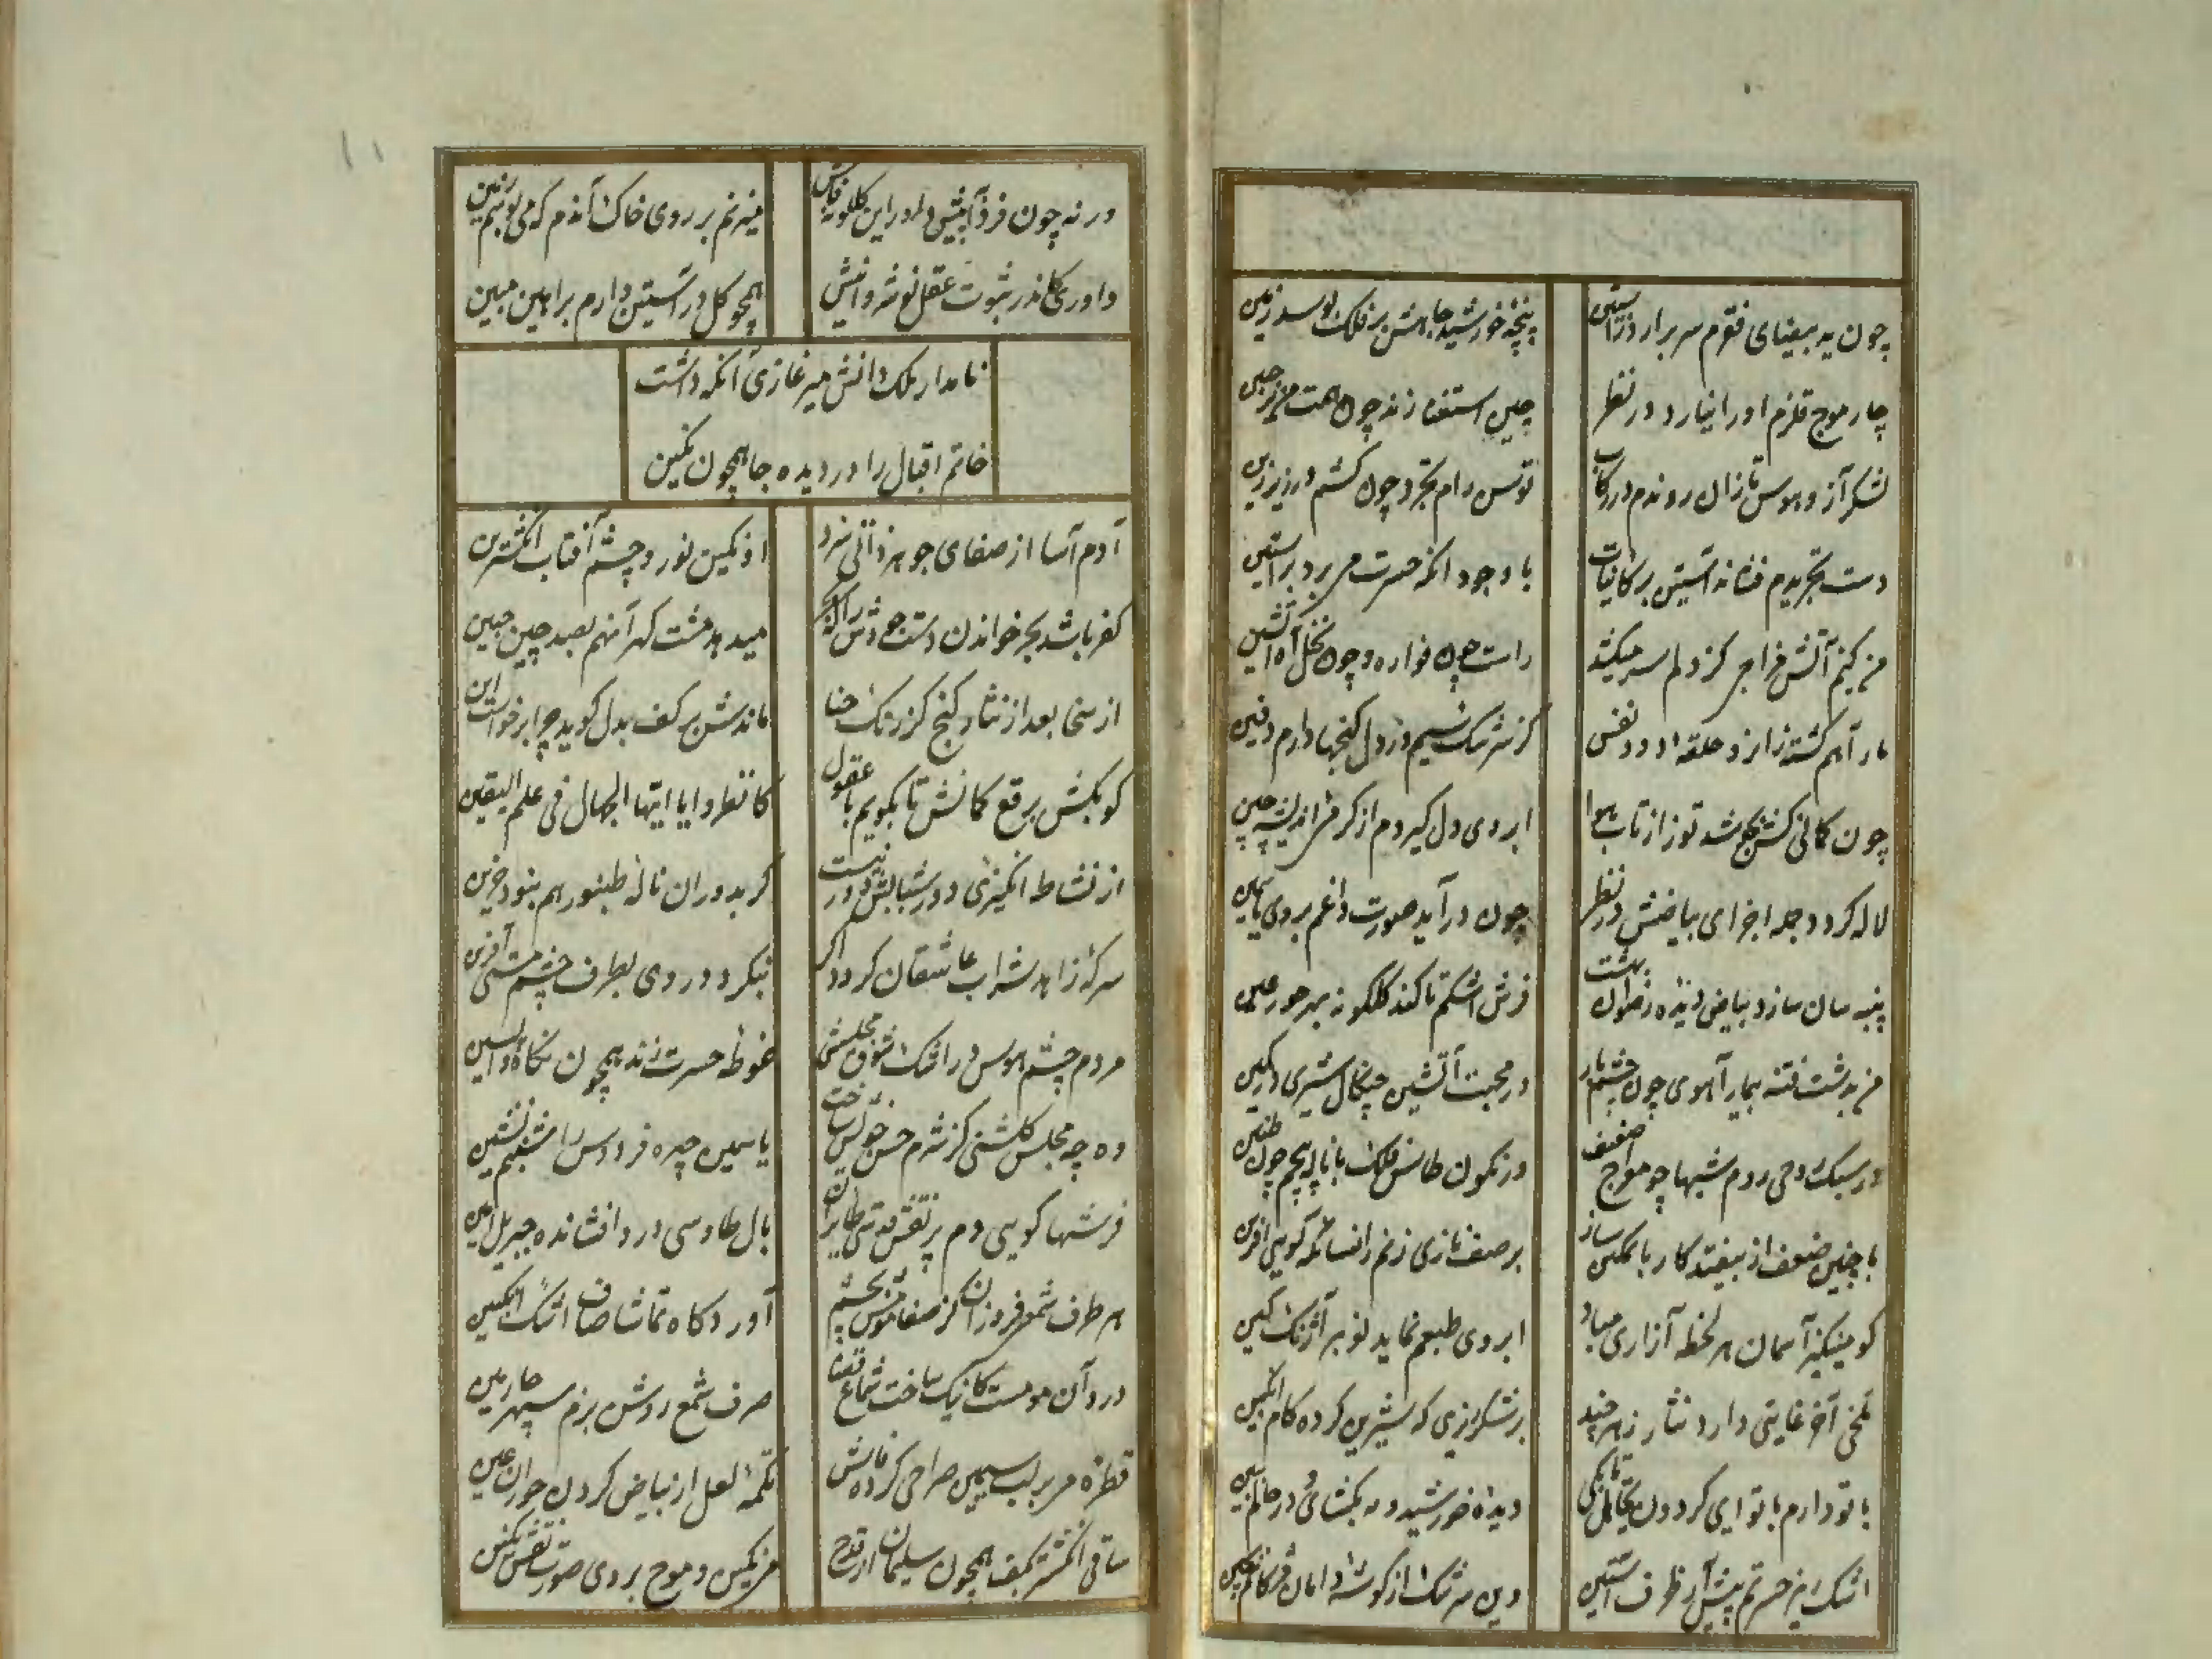 چون ید بیضای فقرم سر برارد ز استین
پنجه خورشید جاهش بر فلک بوسد زمین
چار موج قلزم او را نیارد در نظر
چین استغنا زند چون همت من بر جبین
لشکر آز و هوس تازان روندم در رکاب
توسن رام تجرد چون کشم در زیر زین
دست تجریدم فشاند آستین بر کاینات
با وجود آنکه حسرت می برد بر آستین
من کیم آتش مزاجی کز دلم سر میکشد
راست چون فواره خون نخل آه آتشین
مار آهم گشته زانرو حلقه در دود نفس
کز سرشک سیم در دل گنجها دارم دفین
چون کمانی کش کج شد توز از تاب هوا
ابروی دل گیردم از گرمی اندیشه چین
لاله گردد جمله اجزای بیاضش در نظر
چون درآید صورت داغم بروی یاسمین
پنبه سان سازد بیاض دیده رضوان بهشت
فرش اشکم تا کند گلگونه بهر حور عین
من بدشت فتنه بیمار آهوی چون چشم یار
در محبت آتشین چنگال شیری در کمین
در سبک روحی روم شبها چو موج از ضعف
در نگون طاس فلک با ناله پیچم چون طنین
با چنین ضعف ار بیفتد کار با تمکین ساز
بر صف بازی زنم
کو میکنز آسمان هر لحظه آزاری مباد
ابروی طبعم نماید نوبر آژنگ کین
تلخی آخر غایتی دارد نثار زهر چند
بر شکرریزی که شیرین کرده کام انگبین
با تو دارم با تو ای گردون تجاهل تا بکی
دیده خورشید و مه بگشای و در حالم ببین
اشک ریز حسرتم پیش آر ظرف آستین
وین سرشک از گوشه دامان مژگانم بچین
ورنه چون فردا به پیش داور این گلگونه فاش
میزنم بر روی خاک آندم که می بوسم زمین
داوری کاندر ثبوت عقل نوشروانیش
همچو گل در آستین دارم براهین مبین
نامدار ملک دانش میر غازی آنکه داشت
خاتم اقبال را در دیده جا همچون نگین
آدم آسا از صفای جوهر ذاتی سزد
از نگین نور و چشم آفتاب انگشترین
کفر باشد بحر خواندن دست جودش را که بحر
میدهد مشت گهر آنهم بصد چین جبین
از سخا بعد از نثار گنج گر رنگ حنا
ماندش بر کف بدل گوید چرا برخواست این
کو بکش برقع کمانش تا بگویم با عقول
کانظروا یا ایها الجهال فی علم الیقین
از نشاط انگیزی دور شبابش دور نیست
گر بدوران ناله طنبور هم نبود حزین
سرکه زاهد شراب عاشقان گردد اگر
بنگرد در روی بطرف چشم مستی آفرین
مردم چشم هوس در اشک شوق مجلسش
غوطه حسرت زند همچون نگاه واپسین
وه چه مجلس گلشنی کز شرم حسن خویش ساخت
یاسمین چهره فردوس را شبنم نشین
فرشها گویی دم پر نقش قدسی طایران
بال طاوسی درو افشانده جبریل امین
هر طرف شمعی فروزان کز صفا مومش بچشم
آورد گاه تماشا صاف اشک انگبین
درد آن مومست کاینک ساخت شماع قضا
صرف شمع روشن بزم سپهر چارمین
قطره می بر لب سیمین صراحی کرده فاش
تکمه لعل از بیاض گردن حوران عین
ساقی انگشتر بکف همچون سلیمان از قدح
می نگین و موج بر وی صورت نقش نگین